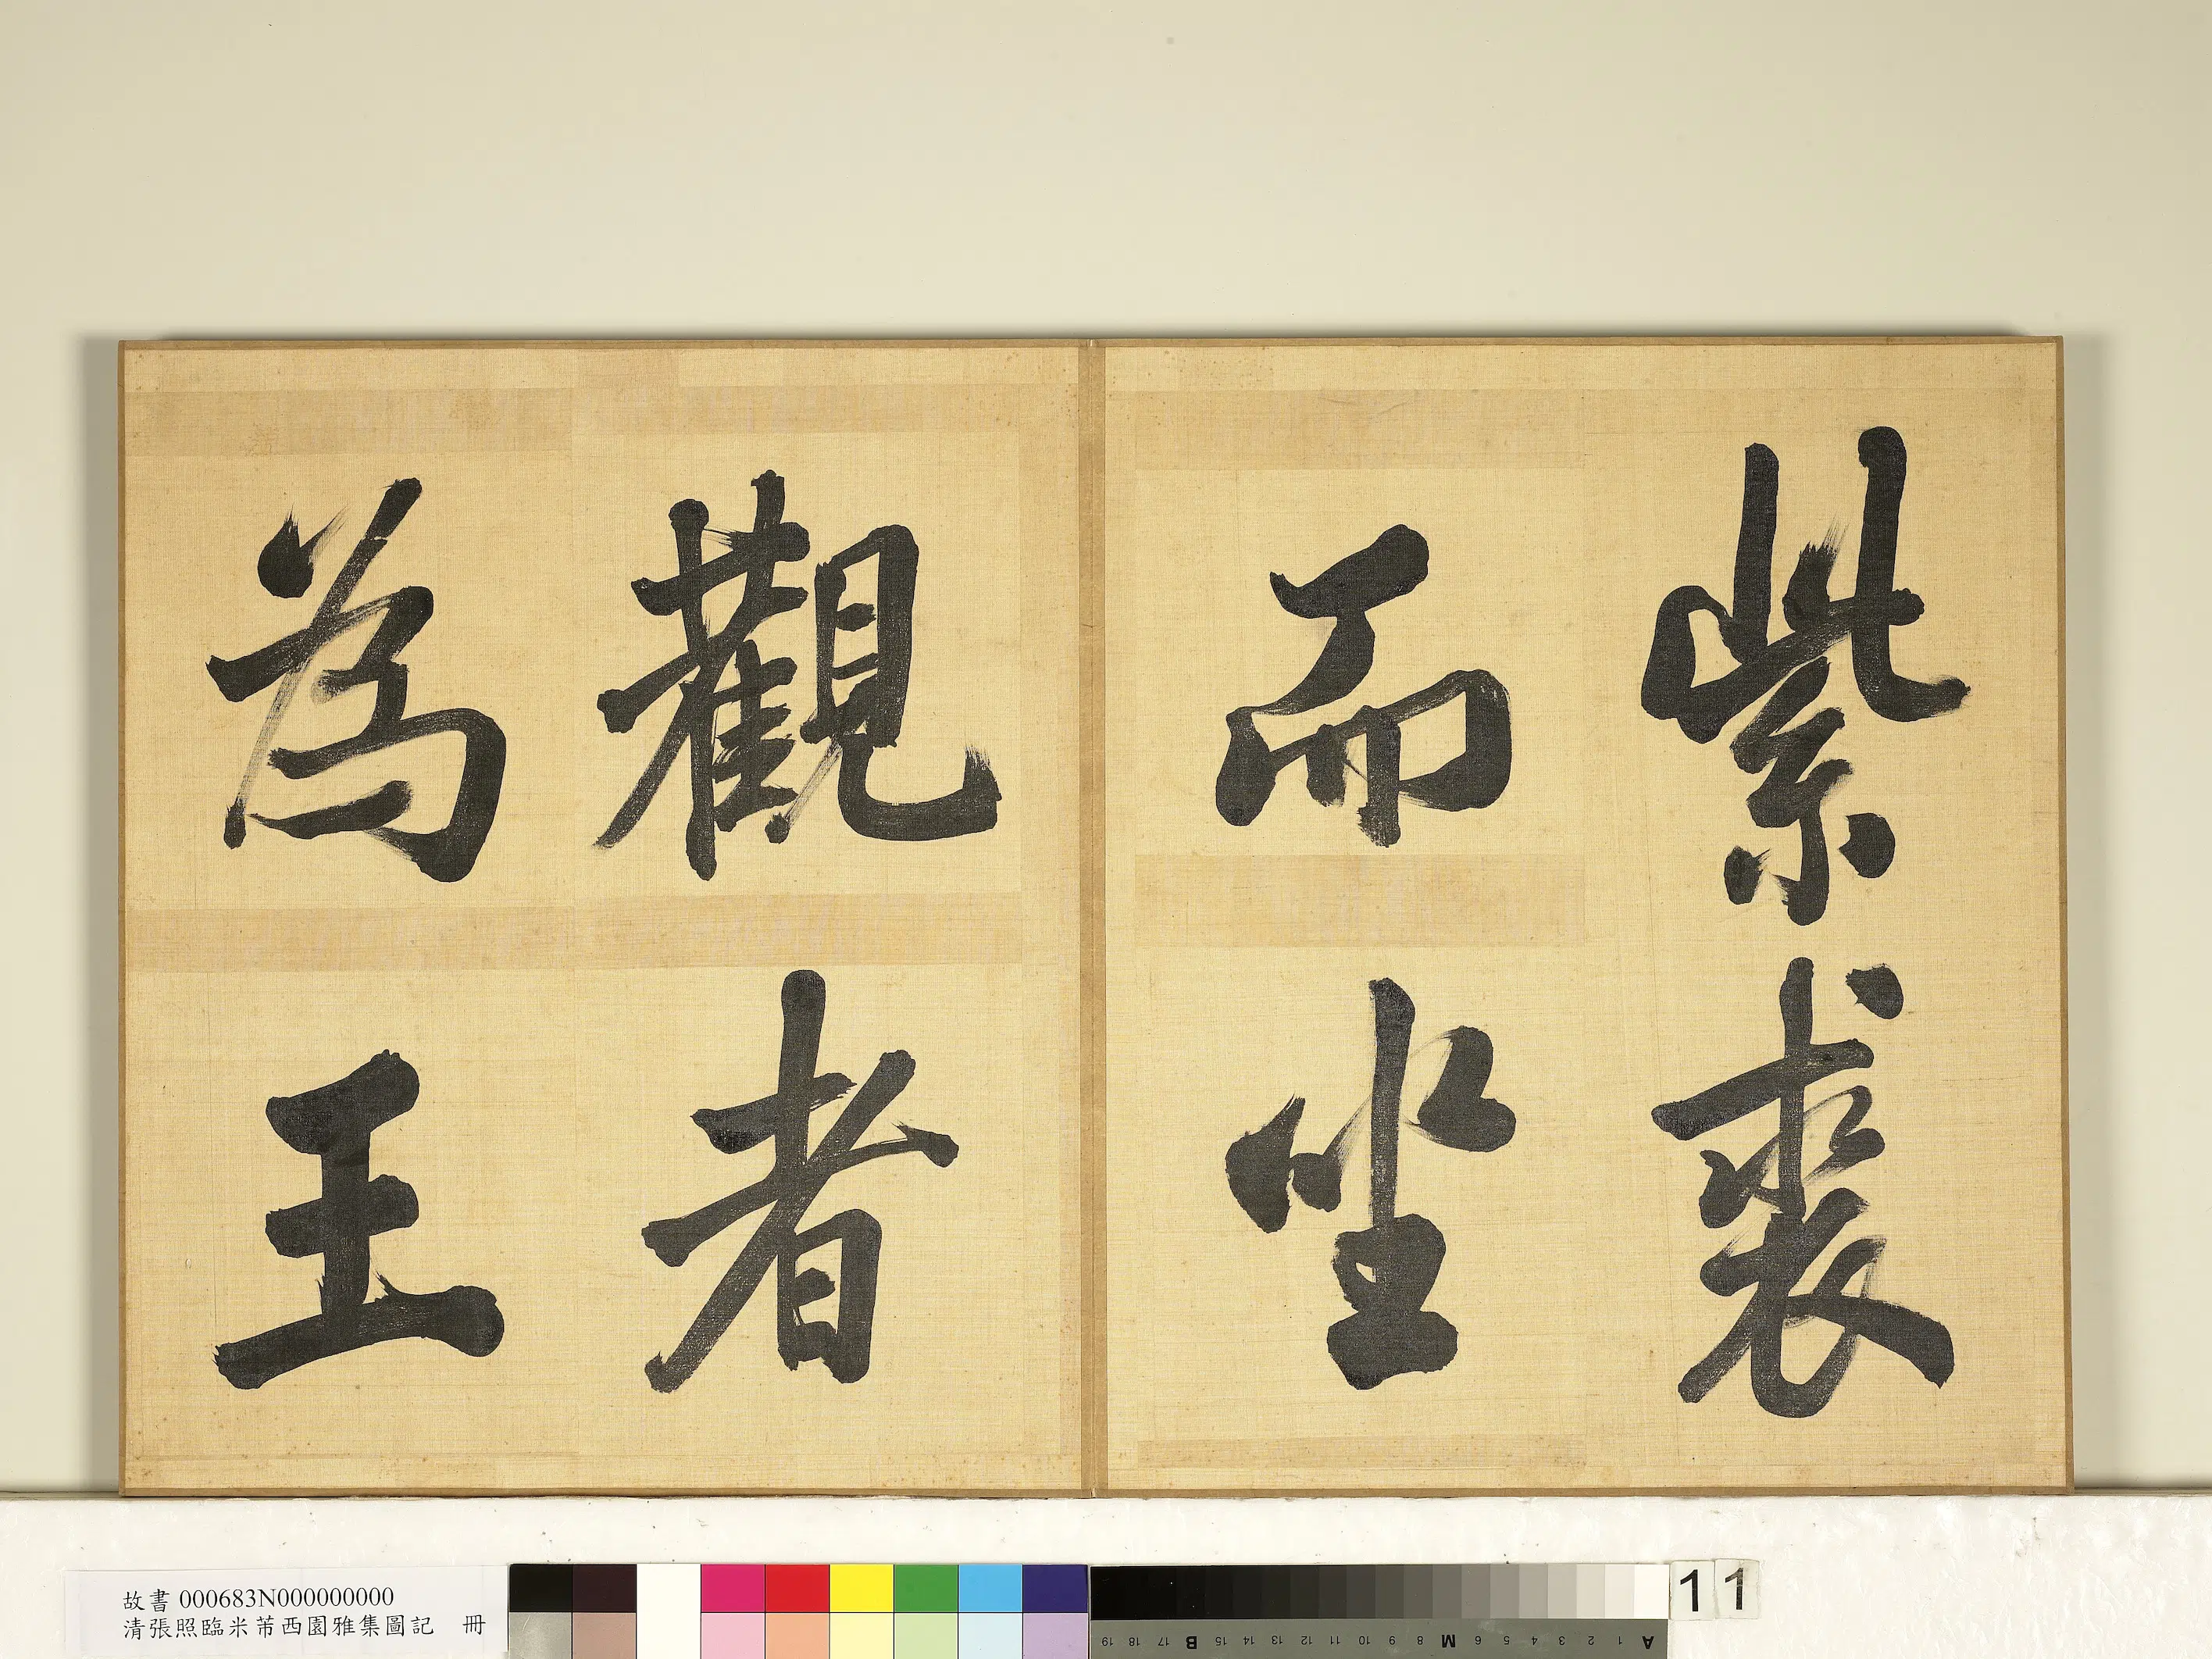 紫裘
而坐
觀者
為王
故書 000683N000000000
清張照臨米芾西園雅集圖記 冊
11
19 18 17 B 15 14 13 12 11 10 9 8 M 6 5 4 3 2 1 A